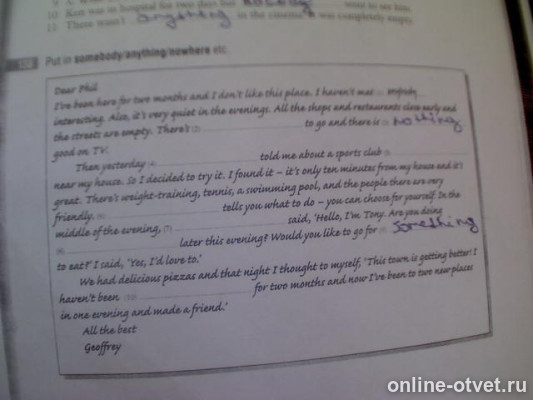 10 Ken was in hospital for two days but nobody went to see him.
11 There wasn't anything in the cinema. It was completely empty.
Put in somebody/anything/nowhere etc.
Dear Phil
I've been here for two months and I don't like this place. I haven't met (1) anybody
interesting. Also, it's very quiet in the evenings. All the shops and restaurants close early and
the streets are empty. There's (2) to go and there is (3) nothing
good on TV.
Then yesterday (4) told me about a sports club (5)
near my house. So I decided to try it. I found it – it's only ten minutes from my house and it's
great. There's weight-training, tennis, a swimming pool, and the people there are very
friendly. (6) tells you what to do – you can choose for yourself. In the
middle of the evening, (7) said, 'Hello, I'm Tony. Are you doing
(8) later this evening? Would you like to go for (9) something
to eat?' I said, 'Yes, I'd love to.'
We had delicious pizzas and that night I thought to myself, 'This town is getting better! I
haven't been (10) for two months and now I've been to two new places
in one evening and made a friend.'
All the best
Geoffrey
online-otvet.ru